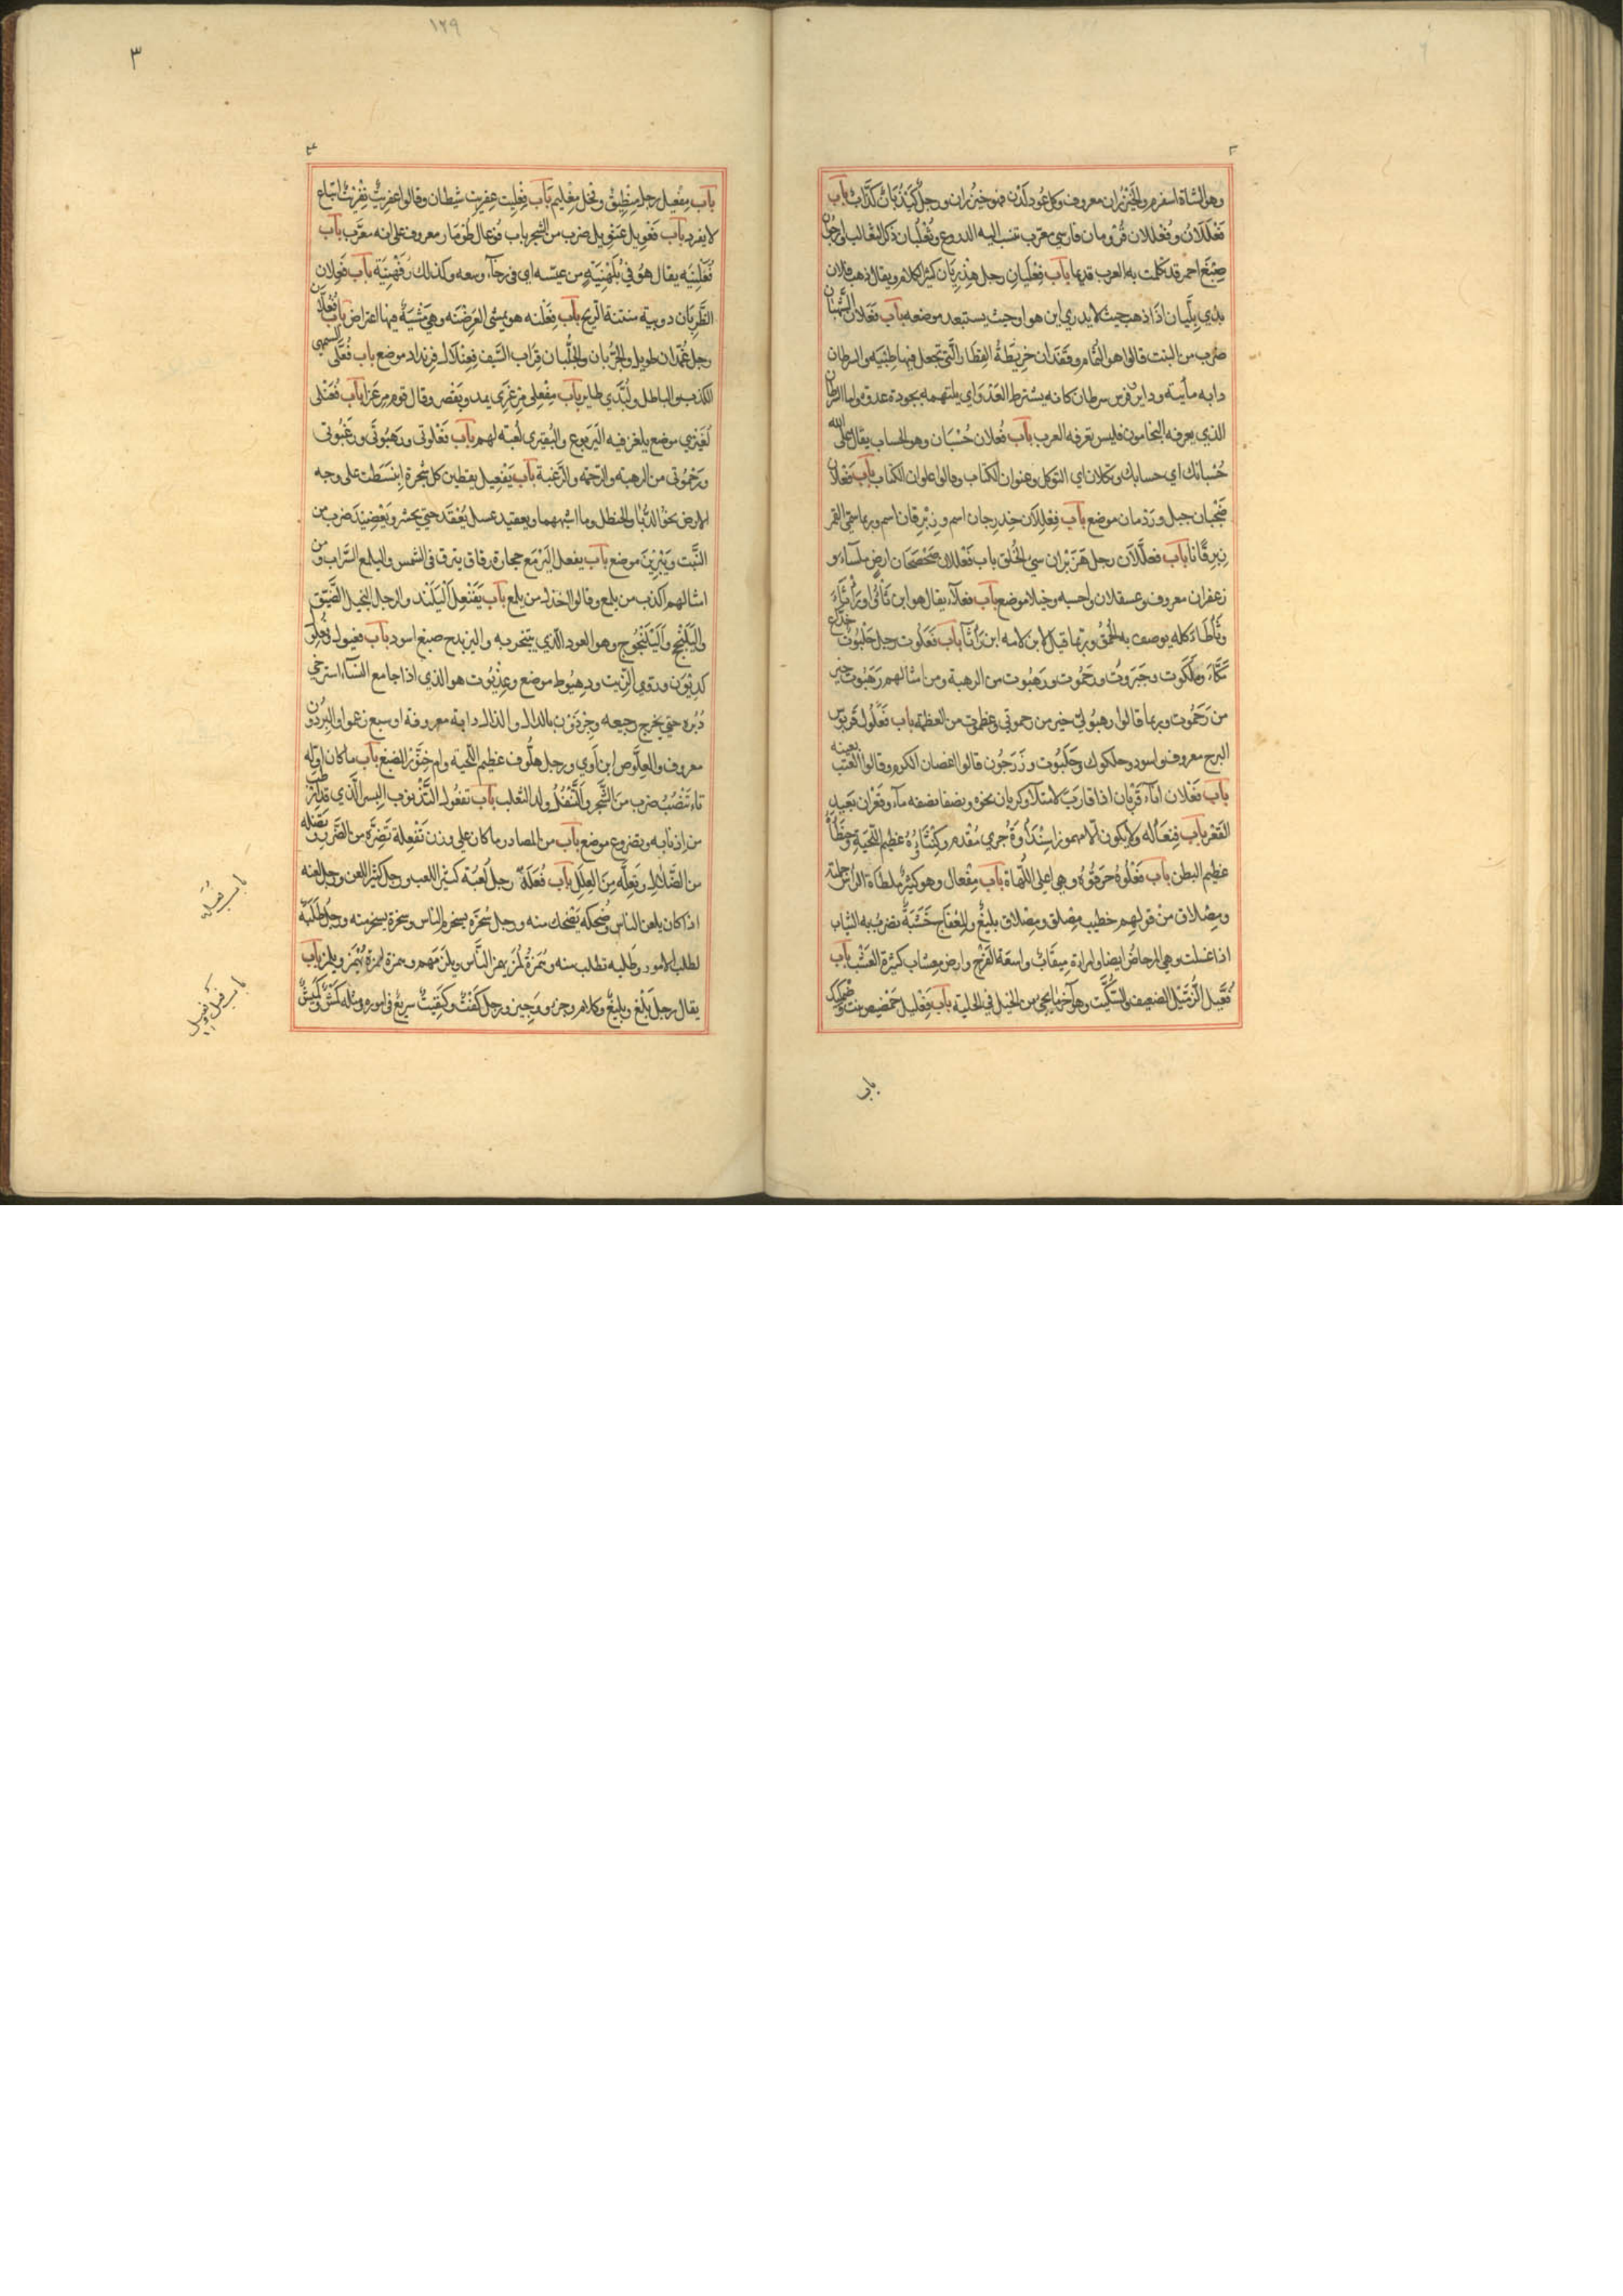 وهي الشاة اسفرم والخيزران معروف وكل عود لدن فهو خيزران ورجل كيذبان كذاب باب
فعللان وفعللان قردمان فارسي معرب تنسب اليه الدروع وثعلبان ذكر الثعالب وارجوان
صبغ احمر قد تكلمت به العرب قديما باب فعليان رجل هذريان كثير الكلام ويقال ذهب فلان
بذي بليان اذا ذهب حيث لا يدري اين هو اوحيث يستبعد موضعه باب فعلان الشبهان
ضرب من النبت قالوا هو الثمام وقفدان خريطة العطار التي تجعل فيها طيبه والسرطان
دابه مأيته وداء فرس سرطان كانه يسترط العدو اي يلتهمه بجودة عدوه واما السرطان
الذي يعرفه النجامون فليس تعرفه العرب باب فعلان حسبان وهو الحساب يقال على الله
حسبانك اي حسابك وتكلان اي التوكل وعنوان الكتاب وقالوا علوان الكتاب باب فعلان
ضجنان جبل وردمان موضع باب فعللان حدرجان اسم وزبرقان اسم وربما سمي القمر
زبرقانا باب فعللان رجل هزنبران سي الخلق باب فعللان صحصحان ارض ملساء و
زعفران معروف وعسقلان واحسبه وخبلا موضع باب فعلاء يقال هو ابن ثأداء
وثأطاء كله يوصف به الحمق وربما قيل لابن لامه ابن ثأثاء باب فعلوت رجل خلبوت خداع
مكار وملكوت وجبروت ورحموت ورهبوت من الرهبة ومن امثالهم رهبوت خير
من رحموت وربما قالوا رهبوتي خير من رحموتي وعظموت من العظمة باب فعلول قربوس
السرج معروف واسود حلكوك وحلبوب وزرجون قالوا اغصان الكرم وقالوا العنب بعينه
باب فعلان اناء قربان اذا قارب الامتلاء وكربان نحوه ونصفان نصفه ماء وقعران بعيد
القعر باب فنعأله ولا يكون الا مهموزا سندأوة جري مقدم وكنثأوة عظيم اللحية وحنظأوة
عظيم البطن باب فعلوه حرقوه وهي اعلى اللهاة باب مفعال وهو كثير ملطاة الراس جملة
ومصلاق من قولهم خطيب مصلق ومصلاق بليغ والمعفاج خشبة يضرب به الثياب
اذا غسلت وهي المرحاض ايضا وامراة ميقاب واسعة الفرج وارض معشاب كثيرة العشب باب
فعيل الزميل الضعيف والسكيت وهو آخر ما يجي من الخيل في الحلبة باب فعليل حمصيص نبت وصمكيك
باب
باب مفعيل رجل منطيق وفحل مغليم باب فعليت عفريت شيطان وقالوا عفريت نفريت اتباع
لا يفرد باب فعويل غسويل ضرب من الشجر باب فوعال طومار معروف على انه معرب باب
فعلنيه يقال هو في بلهنية من عيشه اي في رخاء وسعه وكذلك رفهنية باب فعلان
الظربان دويبة منتنة الريح باب فعلنه هو يمشي العرضنه وهي مشية فيها اعتراض باب فعلان
رجل غمدان طويل والجربان والجلبان قراب السيف فعنلال فرنداد موضع باب فعلى السمهى
الكذب والباطل ولبدي طاير باب مفعلى مرعزى يمد ويقصر وقال قوم مرعزا باب فعيلى
لغيزى موضع يلغز فيه اليربوع والبقيرى لعبة لهم باب فعلوتى ورهبوتى ورغبوتى
ورحموتى من الرهبة والرحمة والرغبة باب يفعيل يقطين كل شجرة انبسطت على وجه
الارض نحو الدباء والحنظل وما اشبههما ويعقيد عسل يعقد حتى يخثر ويعضيد ضرب من
النبت ويبرين موضع باب يفعل اليرمع حجارة رقاق يترقرق في الشمس واليلمع السراب ومن
امثالهم اكذب من يلمع وقالوا اخدع من يلمع باب يفنعل اليلندد والرجل البخيل الضيق
واليلنجج واليلنجوج وهو العود الذي يتبخر به واليرندج صبغ اسود باب فعيول وفعلول
كديون دردي الزيت ودهيوط موضع وعذيوط هو الذي اذا جامع النساء استرخى
دبره حتى يخرج رجيعه وجرذون بالدال والذال دابة معروفة اوسبع زعموا والبرذون
معروف والعلوص ابن آوي ورجل هلوف عظيم اللحية وام خنور الضبع باب ما كان اوله
تاء تنضب ضرب من الشجر والتتفل ولد الثعلب باب تفعول التذنوب البسر الذي قد ارطب
من اذنابه وتضروع موضع باب من المصادر ما كان على وزن تفعلة تضرة من الضرر وتضلة
من الضلال وتعلة من العلل باب فعلة رجل لعبة كثير اللعب ورجل كثير اللعن ورجل لعنه
اذا كان يلعن الناس وضحكه يضحك منه ورجل سخرة يسخر الناس وسخرة يسخر منه ورجل طلبة
لطلب الامور وطلبه تطلب منه وهمزة لمزة يهمز الناس ويلمزهم وهمزة لمزة يهمز ويلمز باب
يقال رجل بلغ وبليغ وكلام وجز ووجيز ورجل كفت وكفيت سريع في اموره ومثله كمش وكميش
باب تفعلة
باب فعل وفعيل
١٢٩
٣